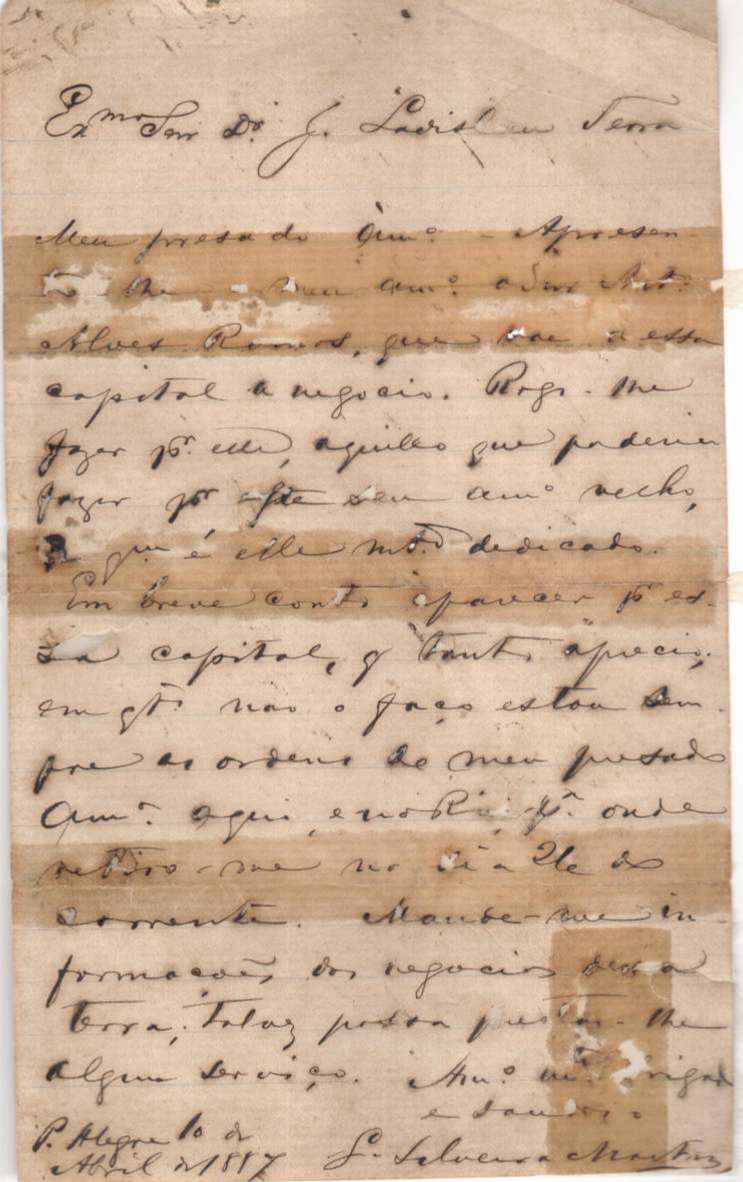 Exmo Snr Dr. J. Ladislau Terra
Meu presado Amo. - Apresen-
to-lhe meu amo. o Snr Anto.
Alves Ramos, que vae a essa
capital a negocio. Rogo-lhe
fazer pr. elle, aquillo que poderia
fazer pr este seu amo velho,
a qm é elle mto. dedicado.
Em breve conto apparecer pr es-
sa capital, q tanto aprecio;
em qto. não o faço estou sem-
pre as ordens de meu presado
Amo. aqui, e no Rio pa. onde
retiro-me no dia 26 do
corrente. Mande-me in-
formações dos negocios dessa
terra; talvez possa prestar-lhe
algum serviço. Amo. mto. obrigado
e
P. Alegre 10 de
Abril de 1887 G. Silveira Martins